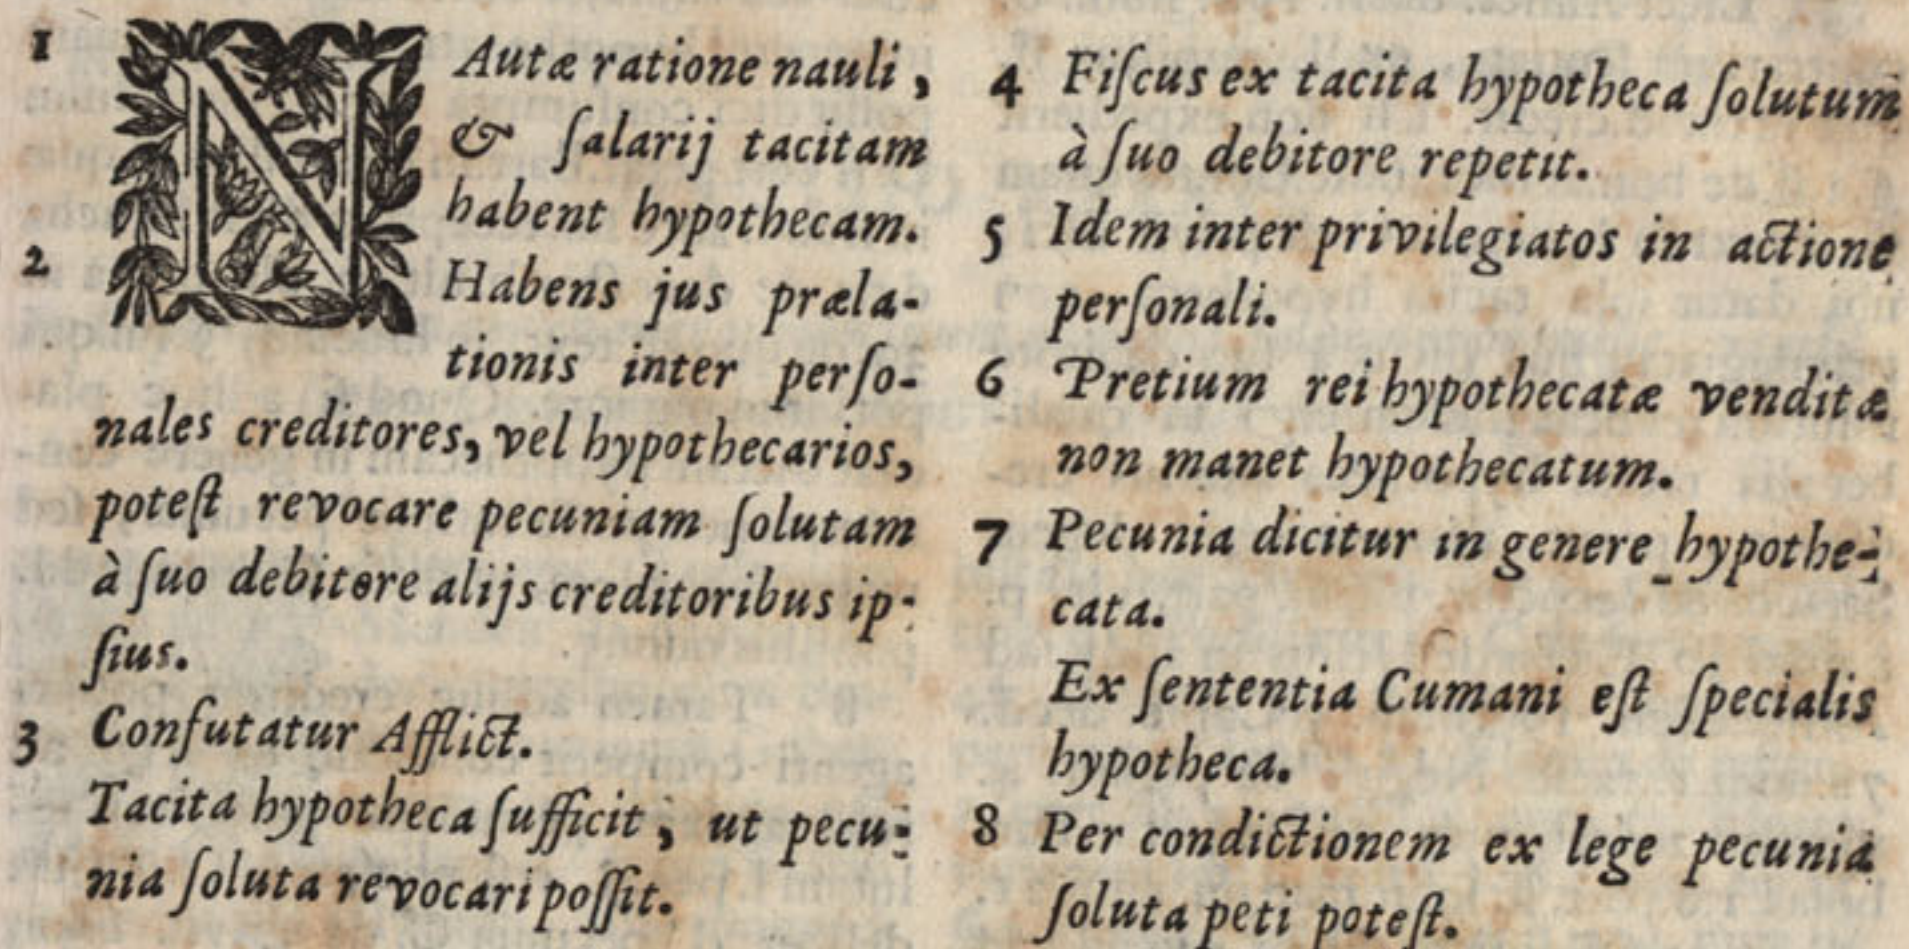 1 NAutæ ratione nauli,
& ſalarij tacitam
habent hypothecam.
2 Habens jus præla-
tionis inter perſo-
nales creditores, vel hypothecarios,
poteſt revocare pecuniam ſolutam
à ſuo debitore alijs creditoribus ip-
ſius.
3 Confutatur Afflict.
Tacita hypotheca ſufficit, ut pecu-
nia ſoluta revocari poſſit.
4 Fiſcus ex tacita hypotheca ſolutum
à ſuo debitore repetit.
5 Idem inter privilegiatos in actione
perſonali.
6 Pretium rei hypothecatæ venditæ
non manet hypothecatum.
7 Pecunia dicitur in genere hypothe-
cata.
Ex ſententia Cumani eſt ſpecialis
hypotheca.
8 Per condictionem ex lege pecunia
ſoluta peti poteſt.